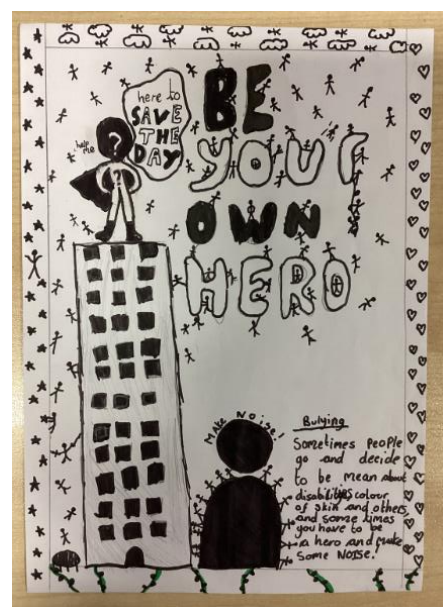 here to
SAVE
THE
DAY
help
me
?
?
BE
YOUr
OWN
HERO
MAKE NOISE!
Bullying
Sometimes people
go and decide
to be mean about
disabilities, colour
of skin and others,
and some times
you have to be
a hero and make
some NOISE!